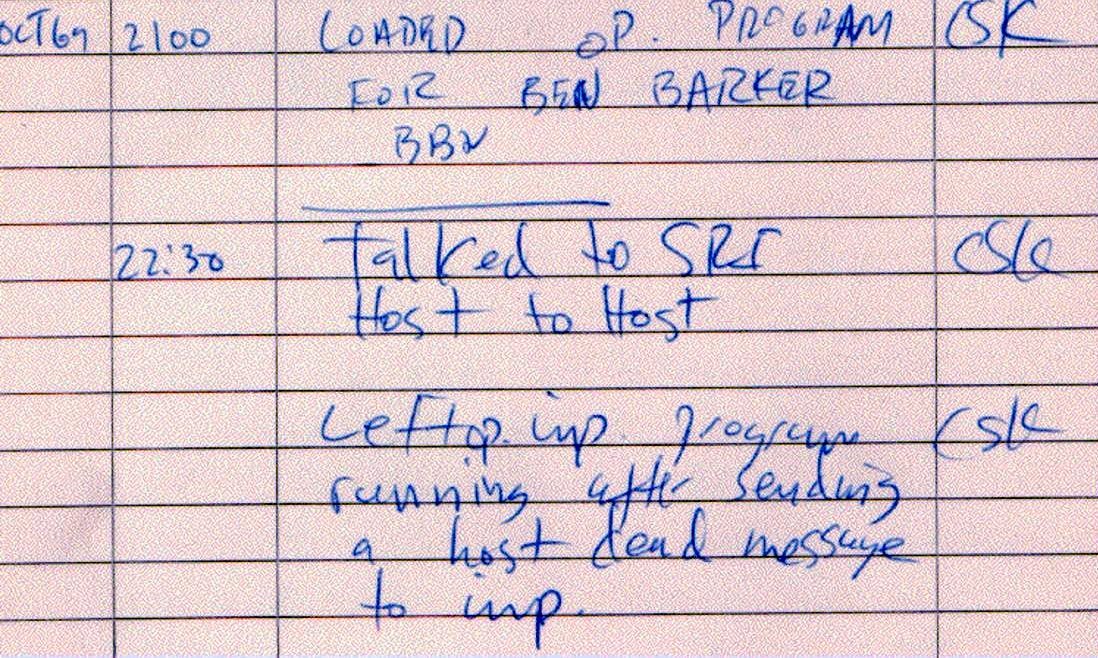 OCT69 2100 LOADED OP. PROGRAM CSK
FOR BEN BARKER
BBN
22:30 Talked to SRI CSK
Host to Host
Left op. imp. program CSK
running after sending
a host dead message
to imp.